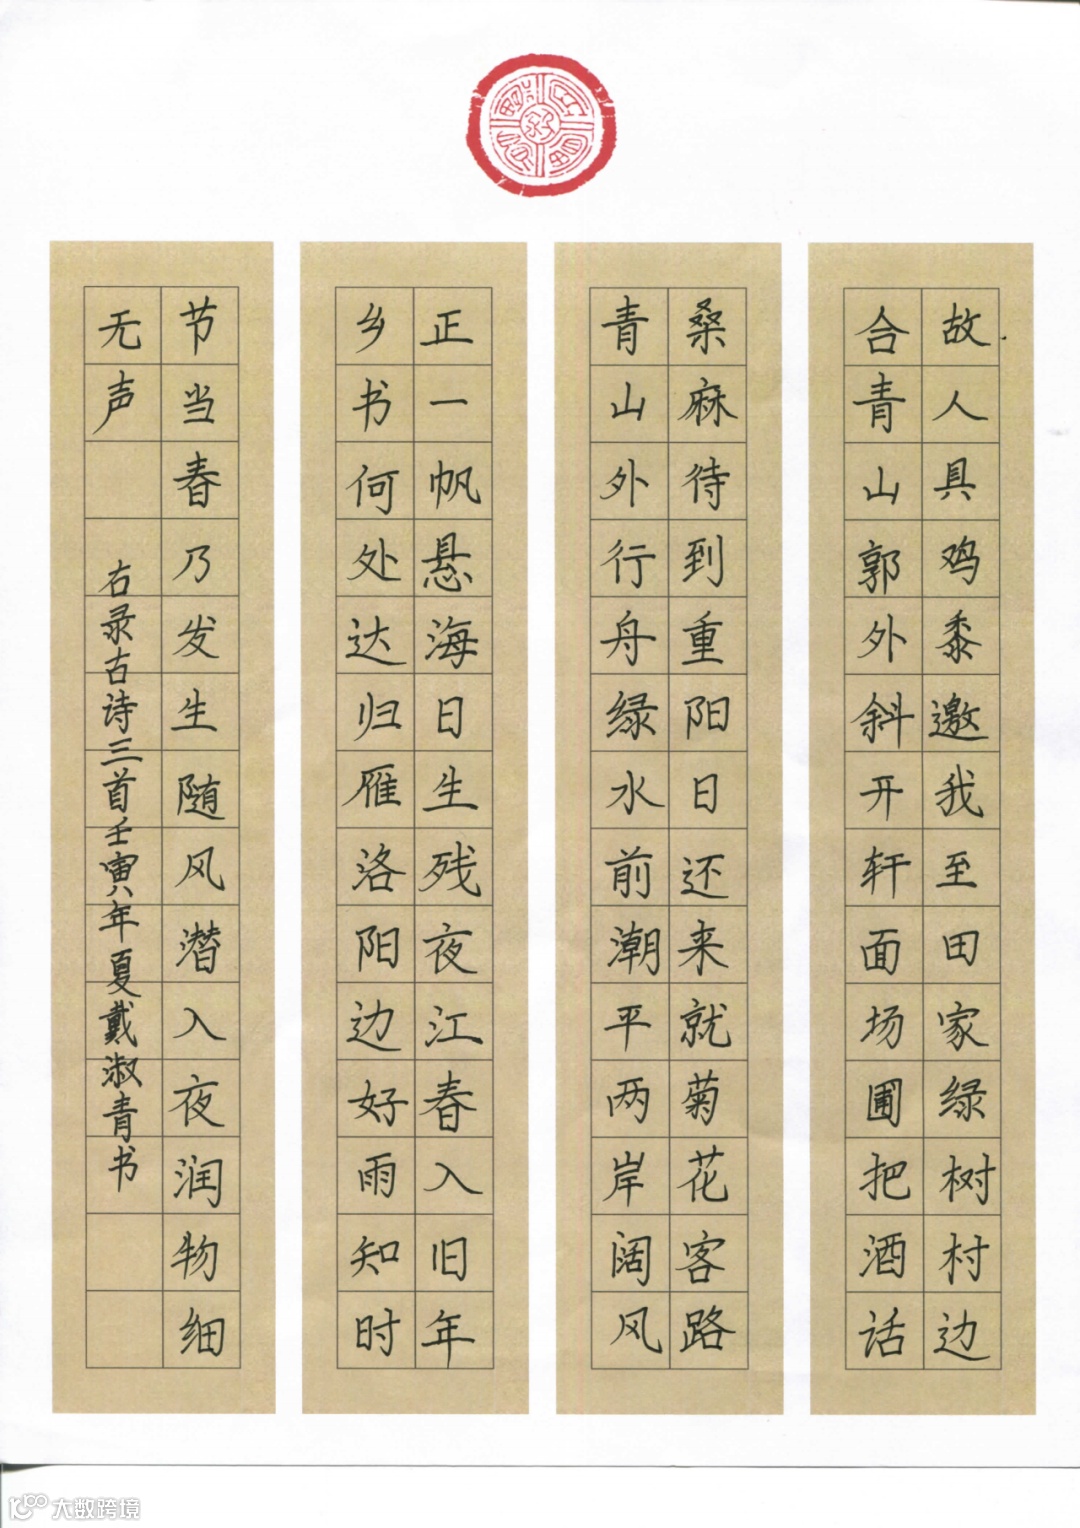 故人具鸡黍邀我至田家绿树村边
合青山郭外斜开轩面场圃把酒话
桑麻待到重阳日还来就菊花客路
青山外行舟绿水前潮平两岸阔风
正一帆悬海日生残夜江春入旧年
乡书何处达归雁洛阳边好雨知时
节当春乃发生随风潜入夜润物细
无声
右录古诗三首壬寅年夏戴淑青书
大数跨境